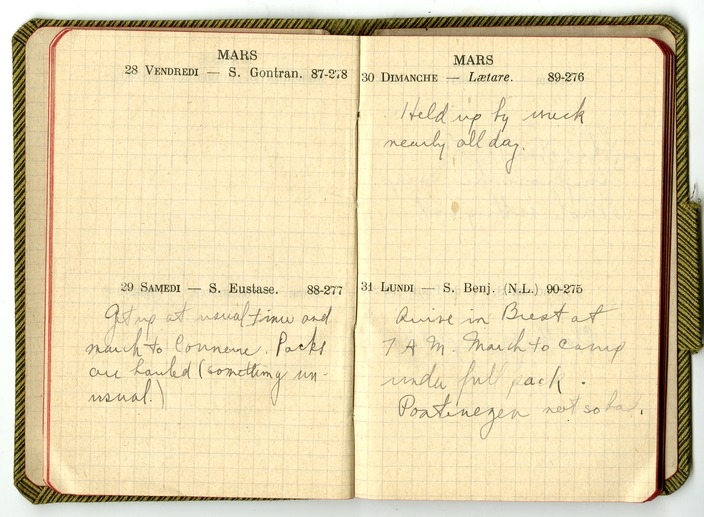 MARS
28 VENDREDI — S. Gontran. 87-278
29 SAMEDI — S. Eustase. 88-277
Get up at usual time and
march to Connerre. Packs
are hauled (something un-
usual.)
MARS
30 DIMANCHE — Lætare. 89-276
Held up by wreck
nearly all day.
31 LUNDI — S. Benj. (N.L.) 90-275
Arrive in Brest at
7 A M. March to camp
under full pack.
Pontanezen not so bad.